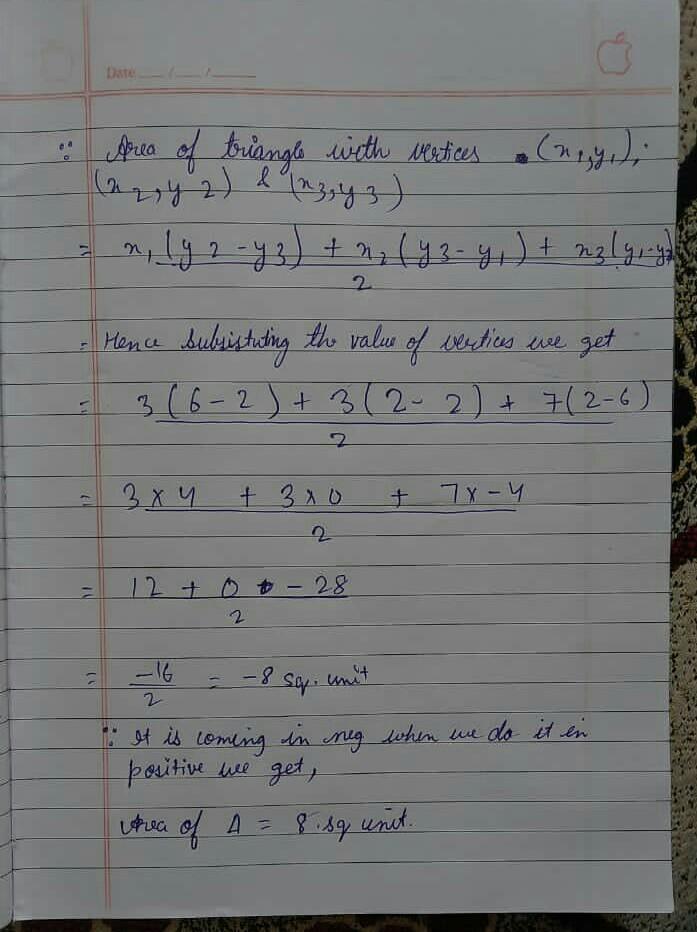 Date __/__/____
∵ Area of triangle with vertices (x₁,y₁),
(x₂,y2) & (x3,y3)
= x₁(y2-y3) + x₂(y3-y₁) + x3(y₁-y2)
2
= Hence subsistuting the value of vertices we get
= 3(6-2) + 3(2-2) + 7(2-6)
2
= 3×4 + 3×0 + 7×-4
2
= 12 + 0 -28
2
= -16/2 = -8 sq. unit
∵ It is coming in neg when we do it in
positive we get,
Area of Δ = 8.sq unit.